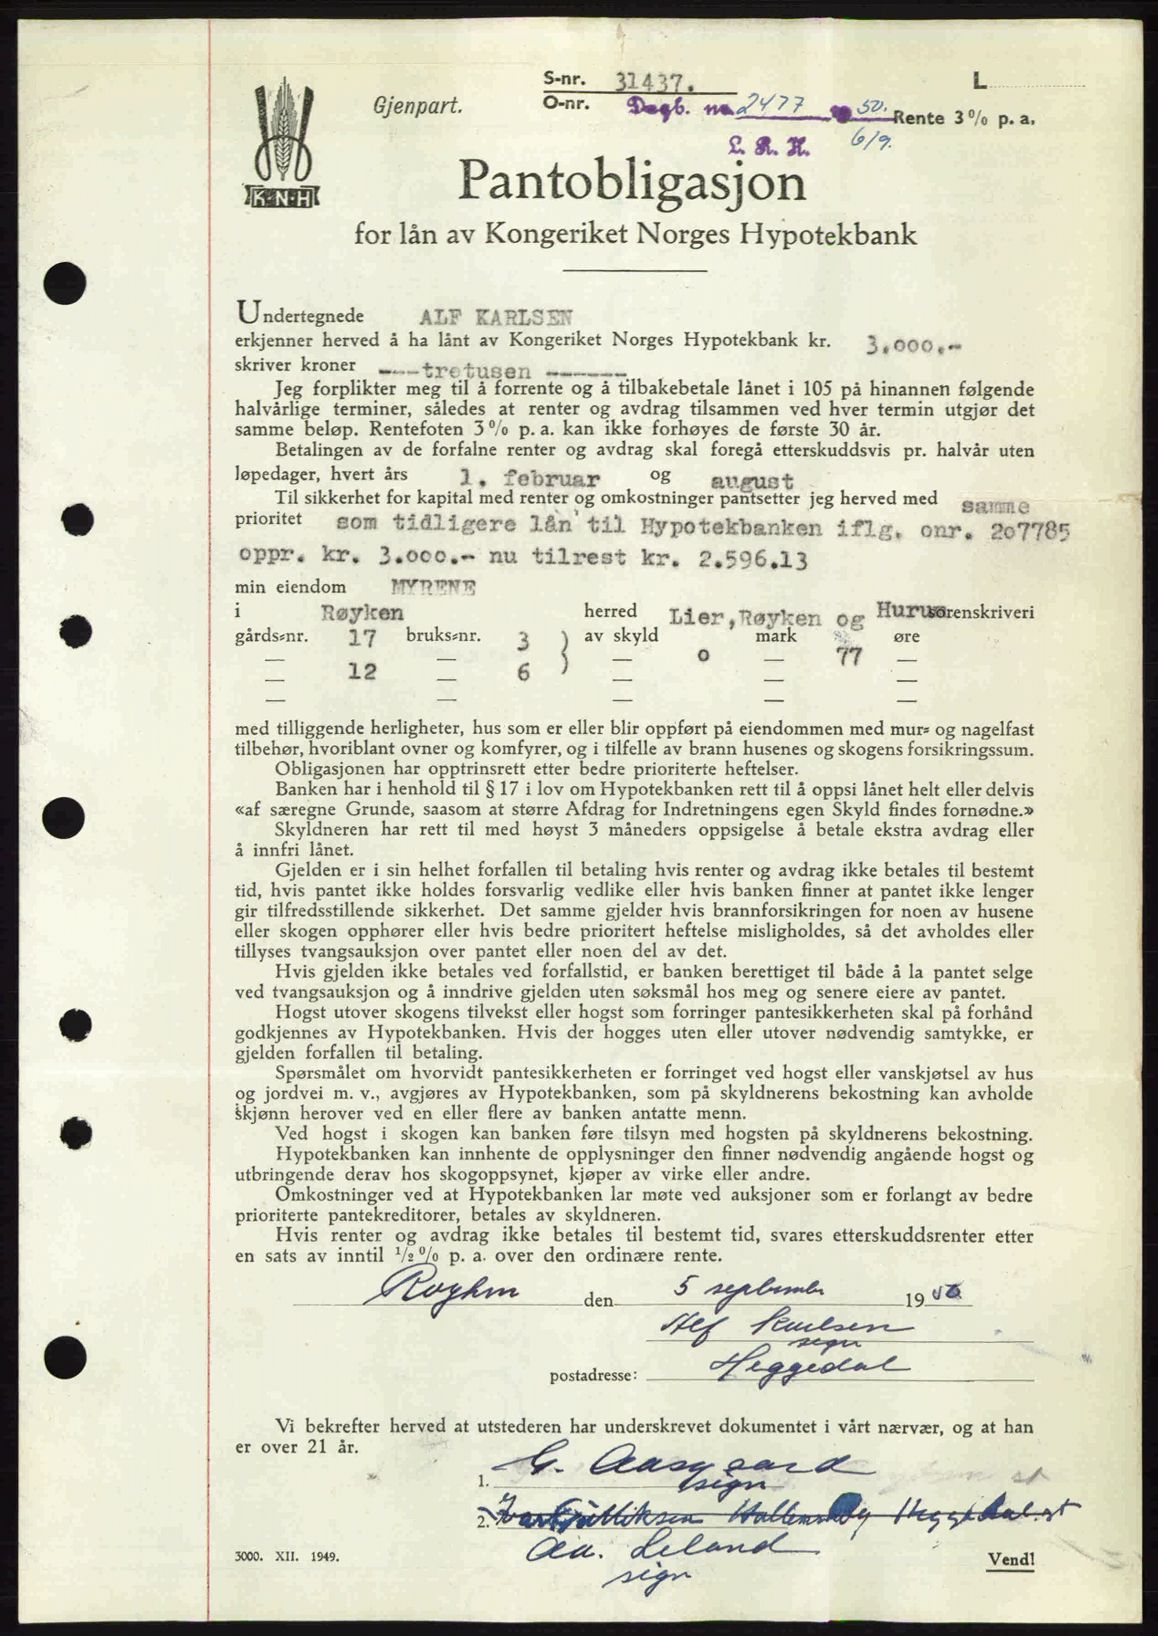 S-nr. 31437.
L
Gjenpart.
O-nr. Dagb. nr 2477 19 50.
Rente 3 % p. a.
L. R. H. 6/9.
K·N·H
Pantobligasjon
for lån av Kongeriket Norges Hypotekbank
Undertegnede ALF KARLSEN
erkjenner herved å ha lånt av Kongeriket Norges Hypotekbank kr. 3.000.-
skriver kroner ----tretusen ------
Jeg forplikter meg til å forrente og å tilbakebetale lånet i 105 på hinannen følgende
halvårlige terminer, således at renter og avdrag tilsammen ved hver termin utgjør det
samme beløp. Rentefoten 3 % p. a. kan ikke forhøyes de første 30 år.
Betalingen av de forfalne renter og avdrag skal foregå etterskuddsvis pr. halvår uten
løpedager, hvert års 1. februar og august
Til sikkerhet for kapital med renter og omkostninger pantsetter jeg herved med samme
prioritet som tidligere lån til Hypotekbanken iflg. onr. 207785
oppr. kr. 3.000.- nu tilrest kr. 2.596.13
min eiendom MYRENE
i Røyken herred Lier, Røyken og Hurum sorenskriveri
gårds-nr. 17 bruks-nr. 3 av skyld mark øre
— 12 — 6 — 0 — 77 —
— — — — —
med tilliggende herligheter, hus som er eller blir oppført på eiendommen med mur- og nagelfast
tilbehør, hvoriblant ovner og komfyrer, og i tilfelle av brann husenes og skogens forsikringssum.
Obligasjonen har opptrinsrett etter bedre prioriterte heftelser.
Banken har i henhold til § 17 i lov om Hypotekbanken rett til å oppsi lånet helt eller delvis
«af særegne Grunde, saasom at større Afdrag for Indretningens egen Skyld findes fornødne.»
Skyldneren har rett til med høyst 3 måneders oppsigelse å betale ekstra avdrag eller
å innfri lånet.
Gjelden er i sin helhet forfallen til betaling hvis renter og avdrag ikke betales til bestemt
tid, hvis pantet ikke holdes forsvarlig vedlike eller hvis banken finner at pantet ikke lenger
gir tilfredsstillende sikkerhet. Det samme gjelder hvis brannforsikringen for noen av husene
eller skogen opphører eller hvis bedre prioritert heftelse misligholdes, så det avholdes eller
tillyses tvangsauksjon over pantet eller noen del av det.
Hvis gjelden ikke betales ved forfallstid, er banken berettiget til både å la pantet selge
ved tvangsauksjon og å inndrive gjelden uten søksmål hos meg og senere eiere av pantet.
Hogst utover skogens tilvekst eller hogst som forringer pantesikkerheten skal på forhånd
godkjennes av Hypotekbanken. Hvis der hogges uten eller utover nødvendig samtykke, er
gjelden forfallen til betaling.
Spørsmålet om hvorvidt pantesikkerheten er forringet ved hogst eller vanskjøtsel av hus
og jordvei m. v., avgjøres av Hypotekbanken, som på skyldnerens bekostning kan avholde
skjønn herover ved en eller flere av banken antatte menn.
Ved hogst i skogen kan banken føre tilsyn med hogsten på skyldnerens bekostning.
Hypotekbanken kan innhente de opplysninger den finner nødvendig angående hogst og
utbringende derav hos skogoppsynet, kjøper av virke eller andre.
Omkostninger ved at Hypotekbanken lar møte ved auksjoner som er forlangt av bedre
prioriterte pantekreditorer, betales av skyldneren.
Hvis renter og avdrag ikke betales til bestemt tid, svares etterskuddsrenter etter
en sats av inntil 1/2 % p. a. over den ordinære rente.
Røyken den 5 september 1950
Alf Karlsen
sign
postadresse: Heggedal
Vi bekrefter herved at utstederen har underskrevet dokumentet i vårt nærvær, og at han
er over 21 år.
1. G. Aasgaard
sign
2. Heggedal st
Aa. Leland
sign
3000. XII. 1949.
Vend!